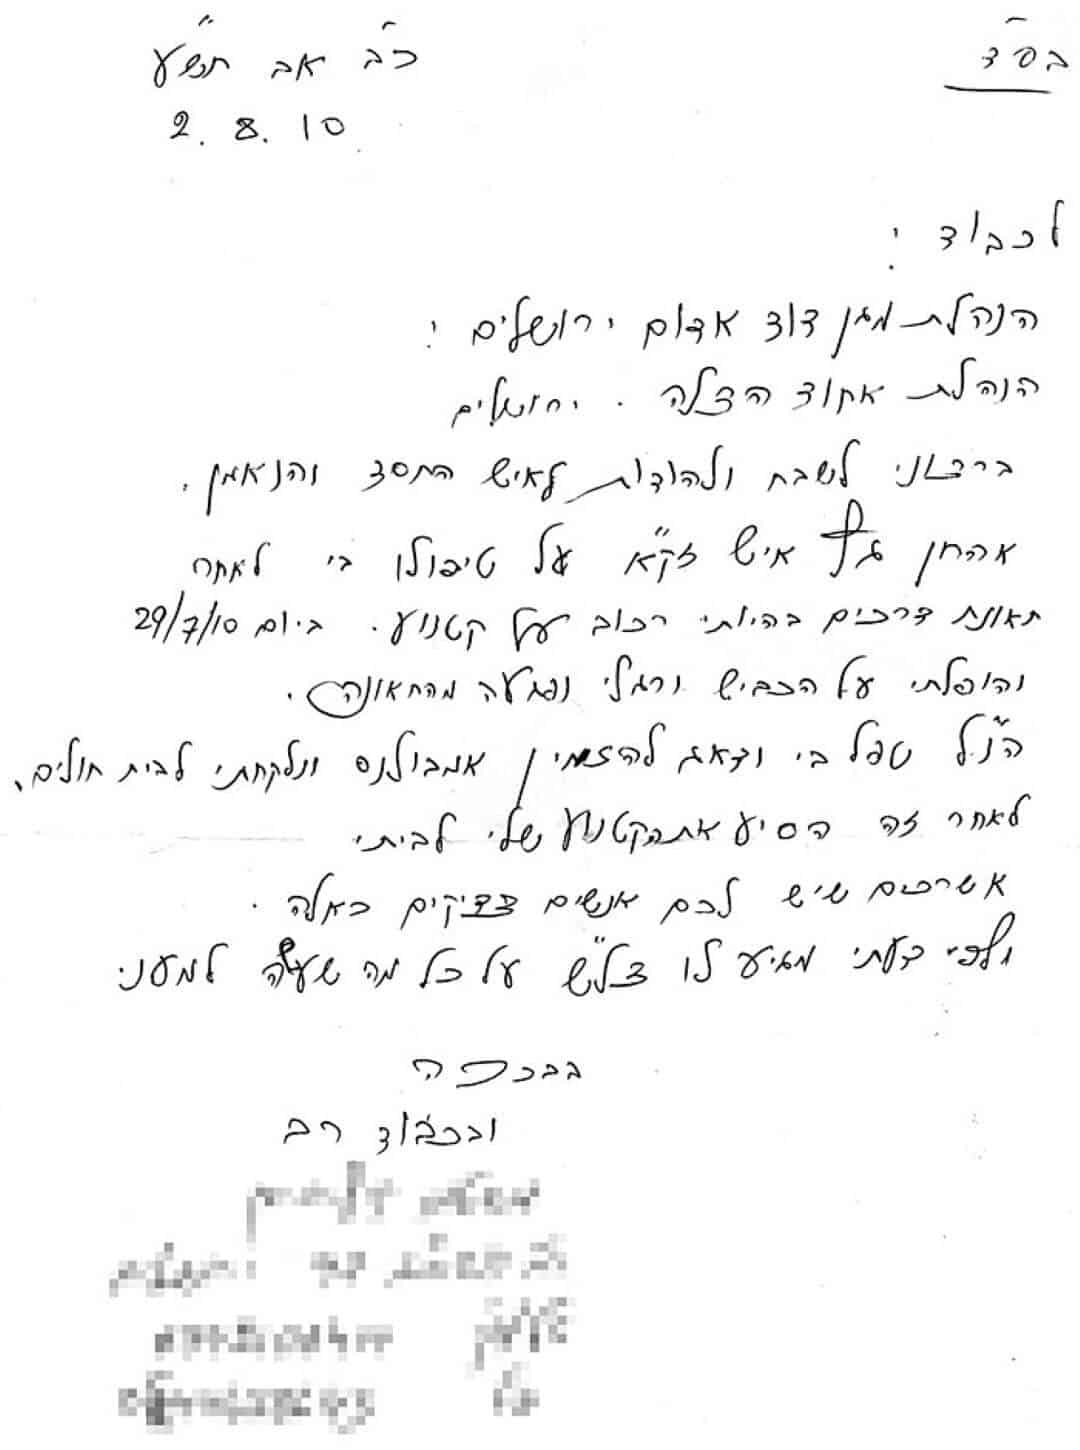 בס"ד
כ"ב אב תש"ע
2.8.10
לכבוד:
הנהלת מגן דוד אדום ירושלים:
הנהלת אחוד הצלה. ירושלים
ברצוני לשבח ולהודות לאיש החסד והנאמן,
אהרן איש זק"א על טיפולו בי לאחר
תאונת דרכים בהיותי רכוב על קטנוע. ביום 29/7/10
והופלתי על הכביש ורגלי נפגעה מהתאונה.
הנ"ל טפל בי ודאג להזמין אמבולנס ונלקחתי לבית חולים,
לאחר זה הסיע את הקטנוע שלי לביתי
אשרכם שיש לכם אנשים צדיקים כאלה.
ולפי דעתי מגיע לו צל"ש על כל מה שעשה למעני
בברכה
ובכבוד רב